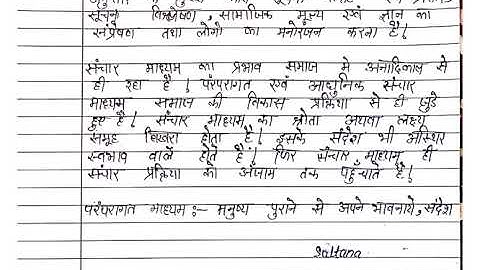 सूचना विश्लेषण, सामाजिक मूल्य एवं ज्ञान का
संप्रेषण तथा लोगो का मनोरंजन करना है।
संचार माध्यम का प्रभाव समाज मे अनादिकाल से
ही रहा है। परंपरागत एवं आधुनिक संचार
माध्यम समाज की विकास प्रक्रिया से ही जुडे
हुए है। संचार माध्यम का श्रोता अथवा लक्ष्य
समूह बिखरा होता है। इसके संदेश भी अस्थिर
स्वभाव वाले होते है। फिर संचार माध्यम ही
संचार प्रक्रिया को अंजाम तक पहुँचाते है।
परंपरागत माध्यम :- मनुष्य पुराने से अपने भावनाये, संदेश
Saltana